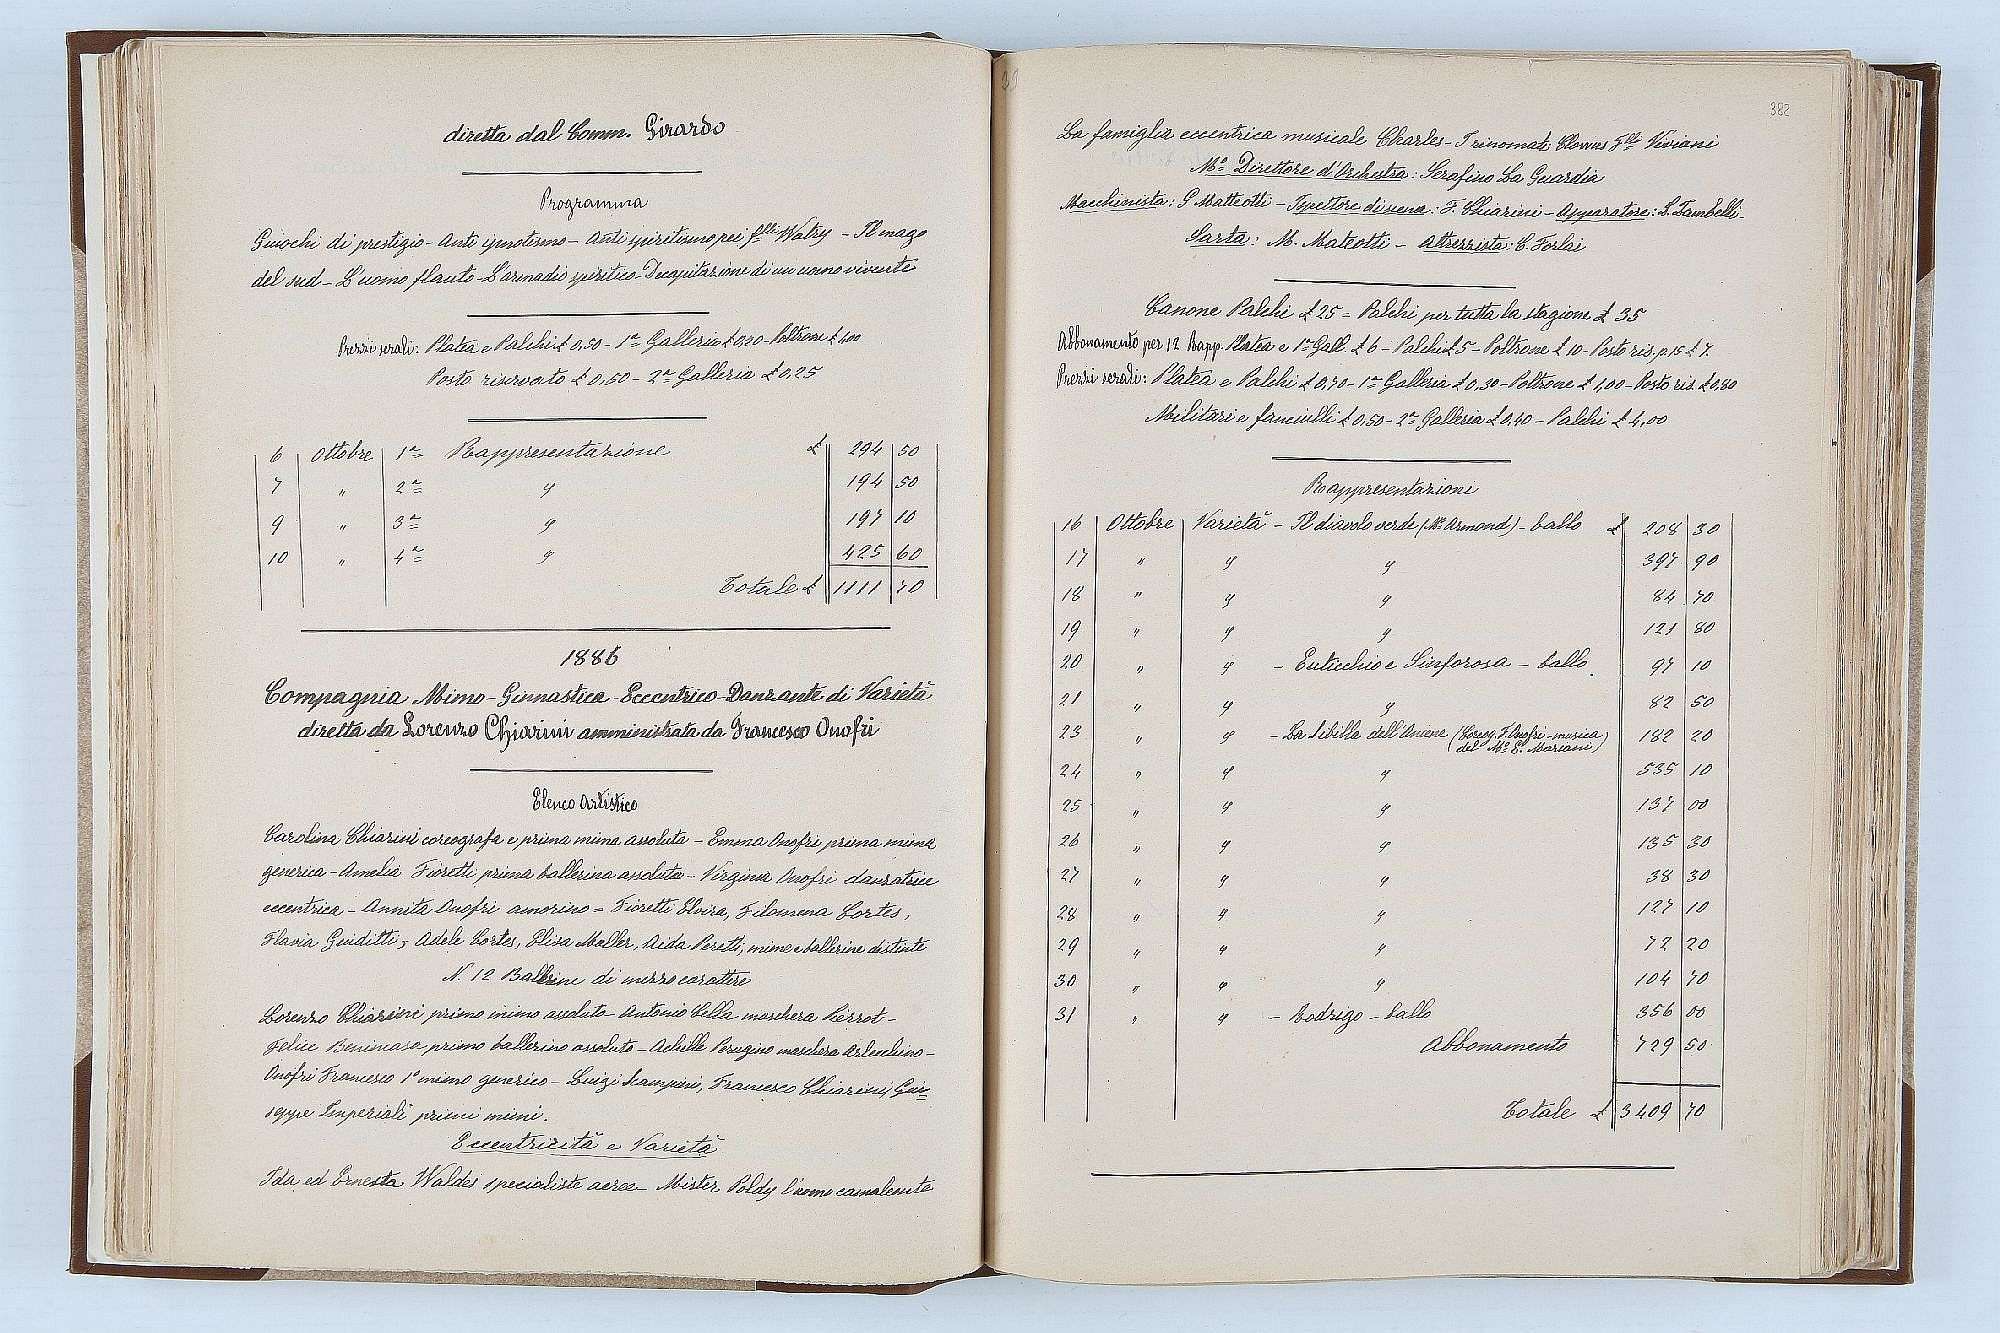 diretta dal Comm. Girardo
Programma
Giuochi di prestigio - Anti ipnotismo - Anti spiritismo pei f.lli Watry - Il mago
del sud - L'uomo flauto - L'armadio spiritico - Decapitazione di un uomo vivente
Prezzi serali: Platea e Palchi £ 0,50 - 1a Galleria £ 0,20 - Poltrone £ 1,00
Posto riservato £ 0,50 - 2a Galleria £ 0,25
6 Ottobre 1a Rappresentazione £ 294 50
7 " 2a " 194 50
9 " 3a " 197 10
10 " 4a " 425 60
Totale £ 1111 70
1886
Compagnia Mimo-Ginnastica-Eccentrico-Danzante di Varietà
diretta da Lorenzo Chiarini amministrata da Francesco Onofri
Elenco Artistico
Carolina Chiarini coreografa e prima mima assoluta - Emma Onofri prima mima
generica - Amelia Fioretti prima ballerina assoluta - Virginia Onofri danzatrice
eccentrica - Annita Onofri amorino - Fioretti Elvira, Filomena Cortes,
Flavia Guiditti, Adele Cortes, Elisa Moller, Aida Peretti, mime e ballerine distinte
N. 12 Ballerine di mezzo carattere
Lorenzo Chiarini primo mimo assoluto - Antonio Cella maschera Pierrot -
Felice Benincasa primo ballerino assoluto - Achille Perugino maschera Arlecchino -
Onofri Francesco 1° mimo generico - Luigi Scampini, Francesco Chiarini, Giu=
seppe Imperiali primi mimi.
Eccentricità e Varietà
Ida ed Ernesta Waldes specialiste aeree - Mister Poldy l'uomo camaleonte
382
La famiglia eccentrica musicale Charles - I rinomati Clowns F.lli Viviani
M° Direttore d'Orchestra: Serafino La Guardia
Macchinista: G Matteotti - Ispettore di scena: F. Chiarini - Apparatore: L. Tambelli -
Sarta: M. Mateotti - Attrezzista: C. Forlai
Canone Palchi £ 25 = Palchi per tutta la stagione £ 35
Abbonamento per 12 Rapp. Platea e 1a Gall. £ 6 - Palchi £ 5 - Poltrone £ 10 - Posto ris. p. 15 £ 7.
Prezzi serali: Platea e Palchi £ 0,70 - 1a Galleria £ 0,30 - Poltrone £ 1,00 - Posto ris. £ 0,80
Militari e fanciulli £ 0,50 - 2a Galleria £ 0,40 - Palchi £ 4,00
Rappresentazioni
16 Ottobre Varietà - Il diavolo verde (Mr. Armond) - ballo £ 208 30
17 " " " 397 90
18 " " " 84 70
19 " " " 121 80
20 " " - Euticchio e Sinforosa - ballo 97 10
21 " " " 82 50
23 " " - La Sibilla dell'Aniene (Coreog. F. Onofri - musica 182 20
del M° E. Mariani)
24 " " " 535 10
25 " " " 137 00
26 " " " 135 30
27 " " " 38 30
28 " " " 127 10
29 " " " 72 20
30 " " " 104 70
31 " " - Rodrigo - ballo 356 00
Abbonamento 729 50
Totale £ 3409 70